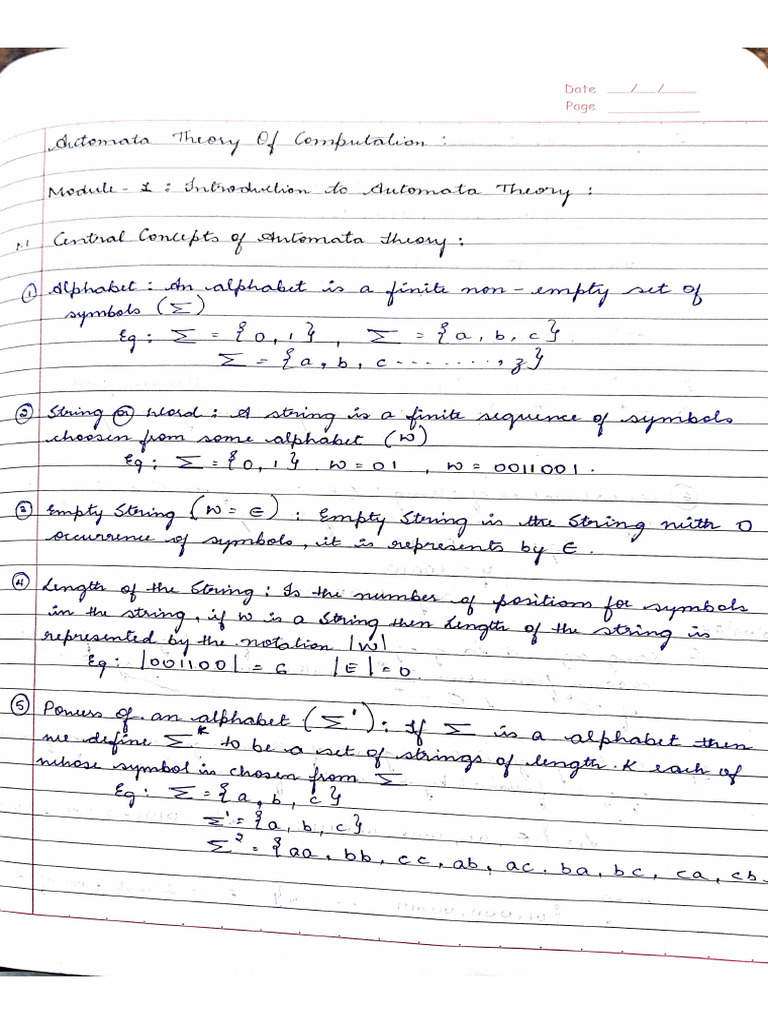 Date __/__/____
Page ________
Automata Theory Of Computation :
Module - 1 : Introduction to Automata Theory :
1.1 Central Concepts of Automata theory :
① Alphabet : An alphabet is a finite non - empty set of
symbols (Σ)
Eg : Σ = {0, 1} , Σ = {a, b, c}
Σ = {a, b, c ........, z}
② String or Word : A string is a finite sequence of symbols
choosen from some alphabet (W)
Eg : Σ = {0, 1} . W = 01 , W = 0011001 .
③ Empty String (W = ∈) : Empty String is the String with 0
occurrence of symbols, it is represents by ∈ .
④ Length of the String : Is the number of positions for symbols
in the string, if W is a String then Length of the string is
represented by the notation |W|
Eg : |001100| = 6 |∈| = 0
⑤ Powers of an alphabet (Σ¹) : If Σ is a alphabet then
we define Σᴷ to be a set of strings of length . K each of
whose symbol is chosen from Σ
Eg : Σ = {a, b, c}
Σ¹ = {a, b, c}
Σ² = {aa, bb, cc, ab, ac, ba, bc, ca, cb